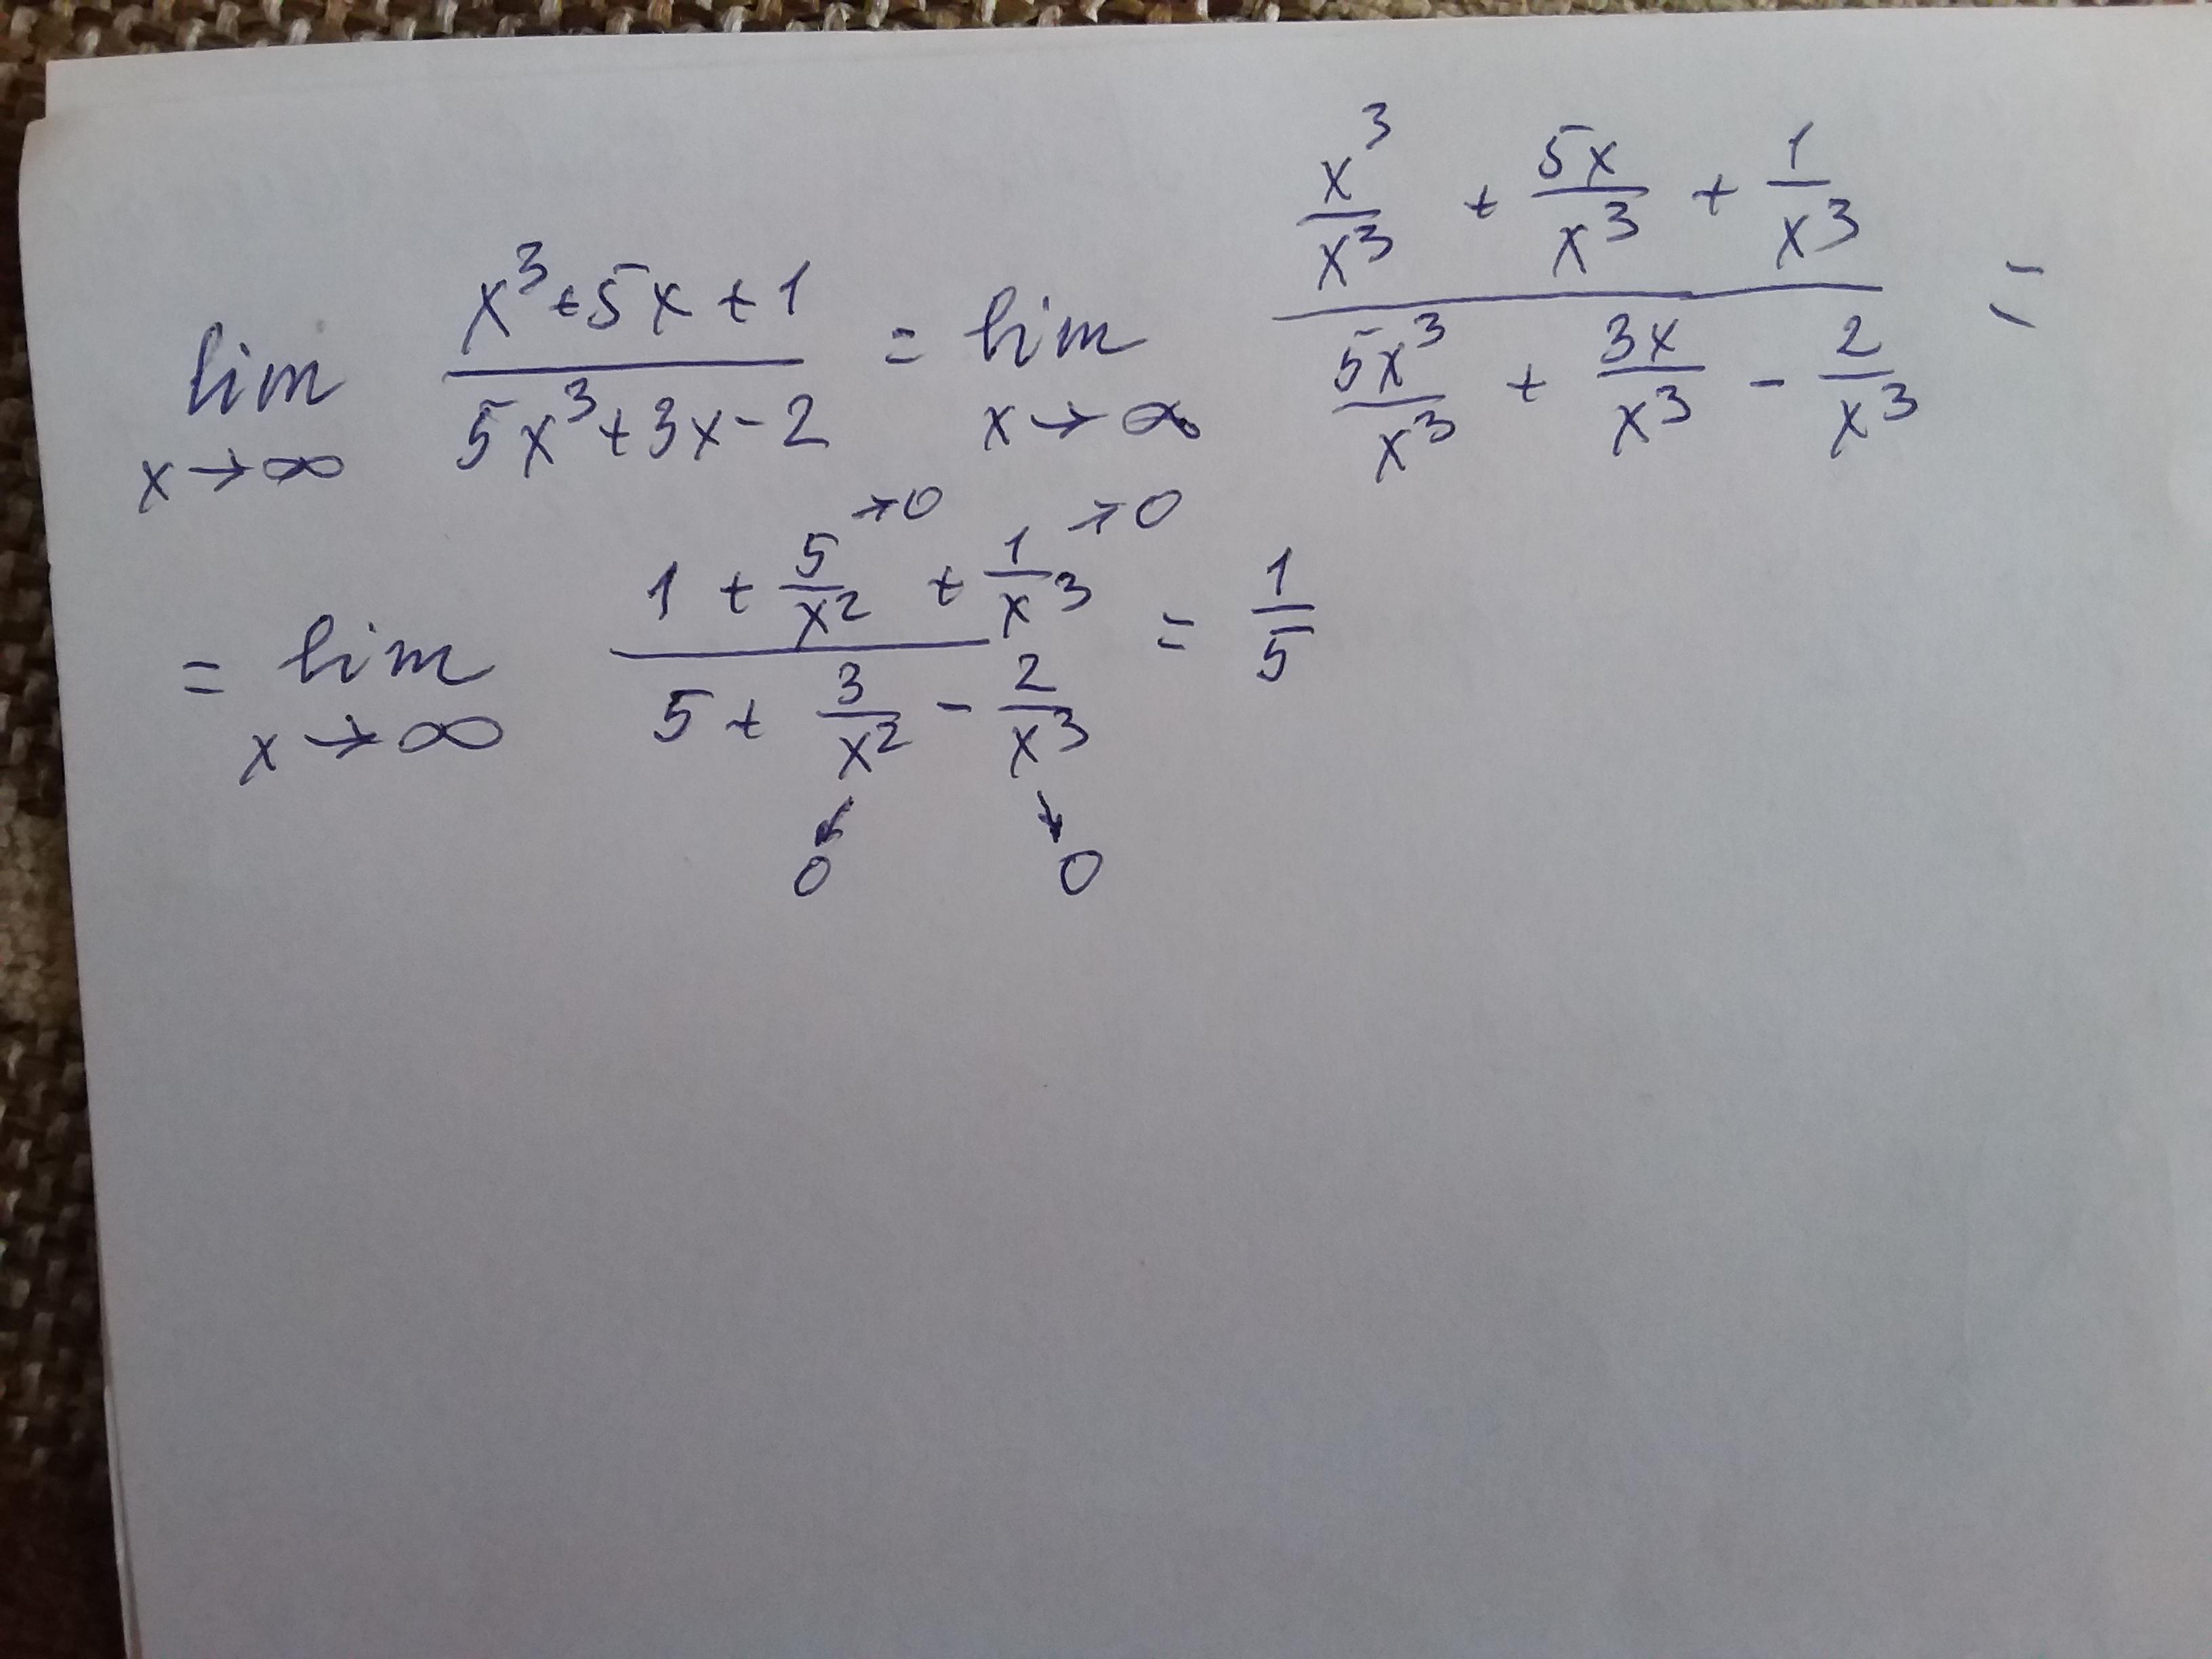 lim x→∞ (x³+5x+1)/(5x³+3x-2) = lim x→∞ (x³/x³ + 5x/x³ + 1/x³)/(5x³/x³ + 3x/x³ - 2/x³) =
= lim x→∞ (1 + 5/x² →0 + 1/x³ →0)/(5 + 3/x² - 2/x³) = 1/5
↙ ↘
0 0